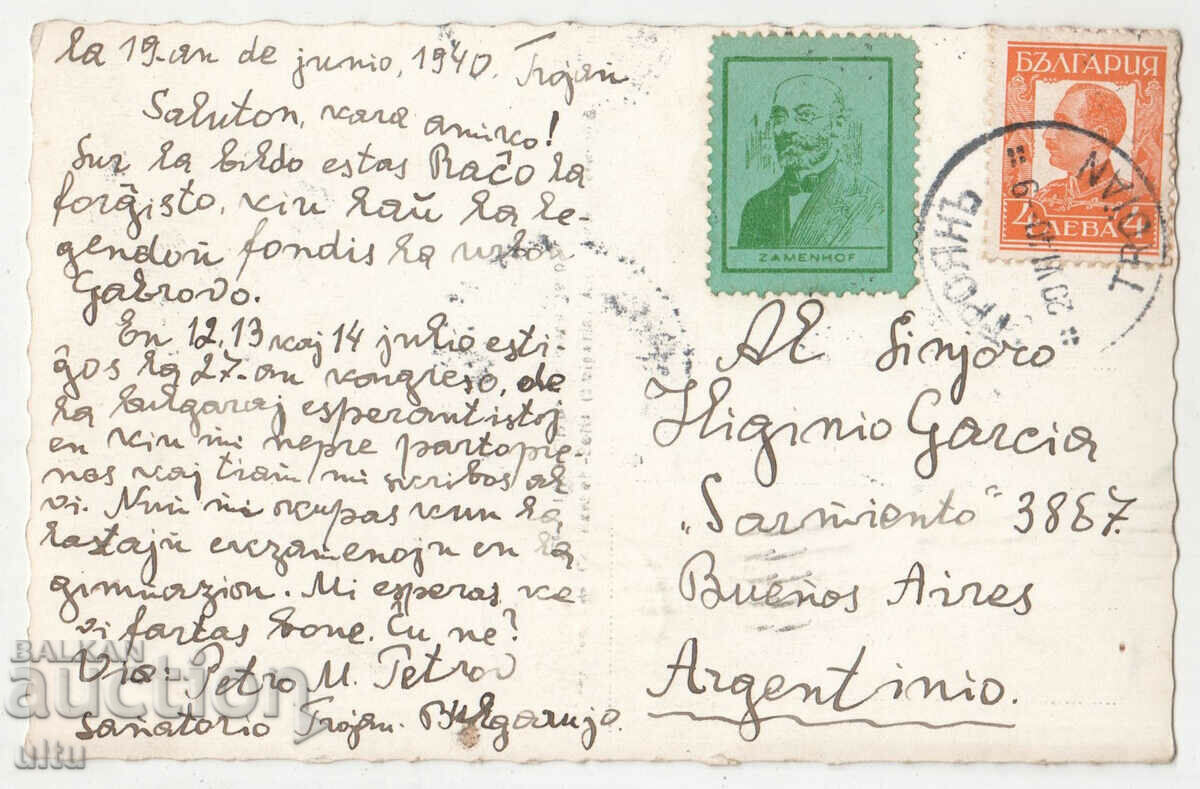 la 19-an de junio, 1940. Trojan
Saluton, kara amiko!
Sur la bildo estas Raĉo la
forĝisto, kiu laŭ la le-
gendoj fondis la urbon
Gabrovo.
En 12, 13 kaj 14 julio esti-
ĝos la 27-an kongreso, de
la bulgaraj esperantistoj
en kiu mi nepre partopre-
nos kaj tiam mi skribos al
vi. Nun mi okupas kun la
lastajn ekzamenojn en la
gimnazion. Mi esperas ke
vi fartas bone. Ĉu ne?
Via: Petro M. Petrov
Sanatorio Trojan. Bulgarujo.
ZAMENHOF
БЪЛГАРИЯ
4 ЛЕВА 4
ТРОЯНЪ
TROIAN
20 VI 40 - 9
Al Sinjoro
Higinio Garcia
„Sarmiento" 3867.
Buenos Aires
Argentinio.
BALKAN
auction
ultu